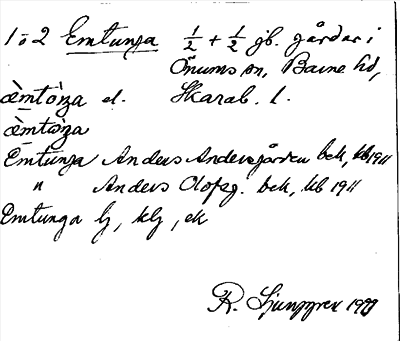 1 o 2 Emtunga ½ + ½ jb. gårdar i
Önums sn, Barne hd,
æ̀mtòŋa el. Skarab. l.
æ̀mtòŋa
Emtunga Anders Andersgården bek, kb 1911
" Anders Olofsg. bek, kb 1911
Emtunga lj, klj, ek
R. Ljunggren